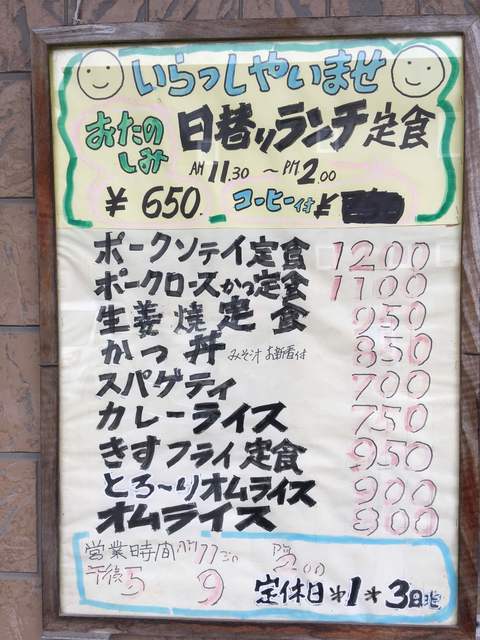 いらっしゃいませ
おたのしみ 日替りランチ定食
AM 11.30 ～ PM 2.00
¥ 650. コーヒー付 ¥
ポークソテイ定食 1200
ポークロースかつ定食 1100
生姜焼定食 950
かつ丼 みそ汁 お新香付 850
スパゲティ 700
カレーライス 750
きすフライ定食 950
とろ〜りオムライス 900
オムライス 800
営業時間 AM 11.30 PM 2.00
午後5 9 定休日 *1*3日